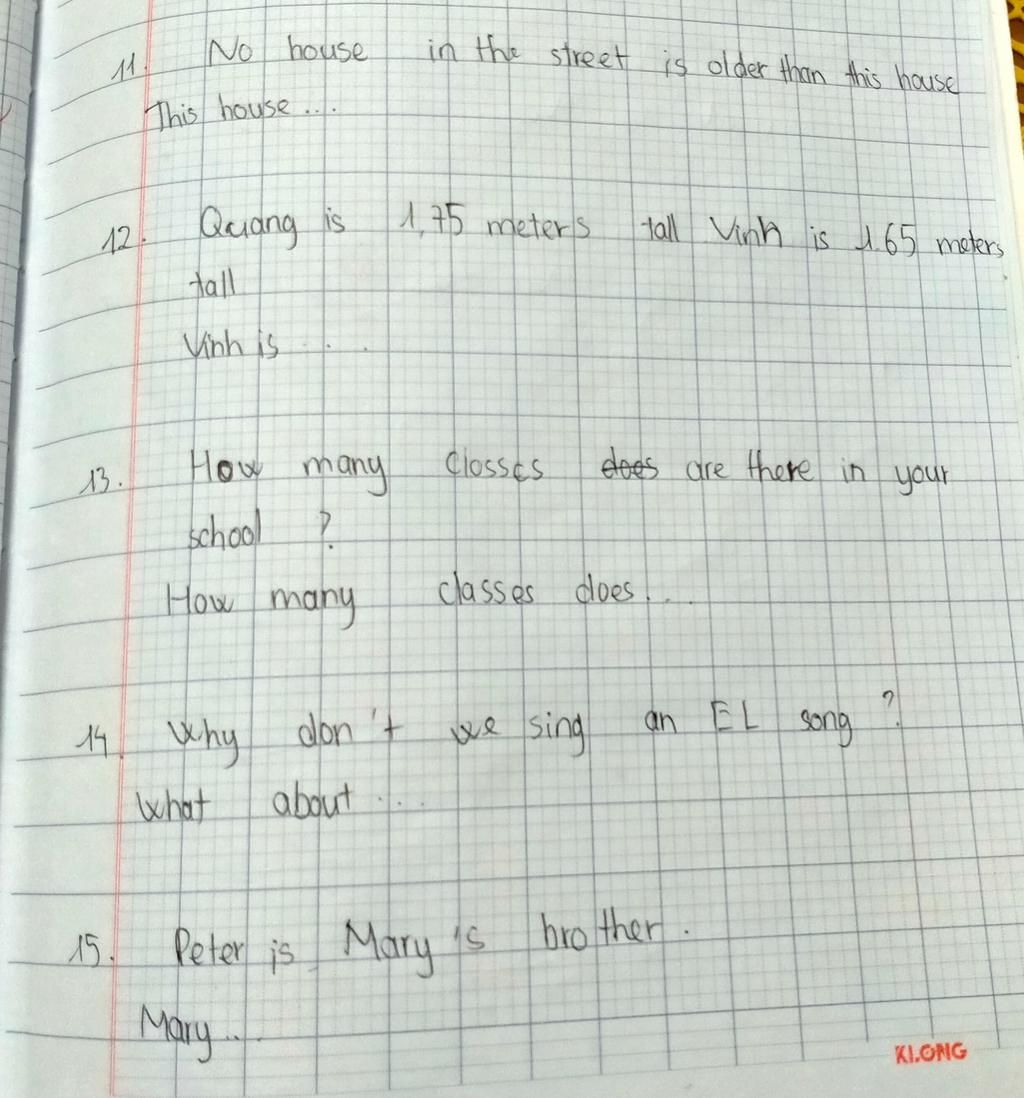 11. No house in the street is older than this house
This house ...
12. Quang is 1,75 meters tall Vinh is 1.65 meters
tall
Vinh is . . .
13. How many closses does are there in your
school ?
How many classes does...
14 Why don't we sing an EL song ?
What about ....
15. Peter is Mary's brother.
Mary...
KLONG